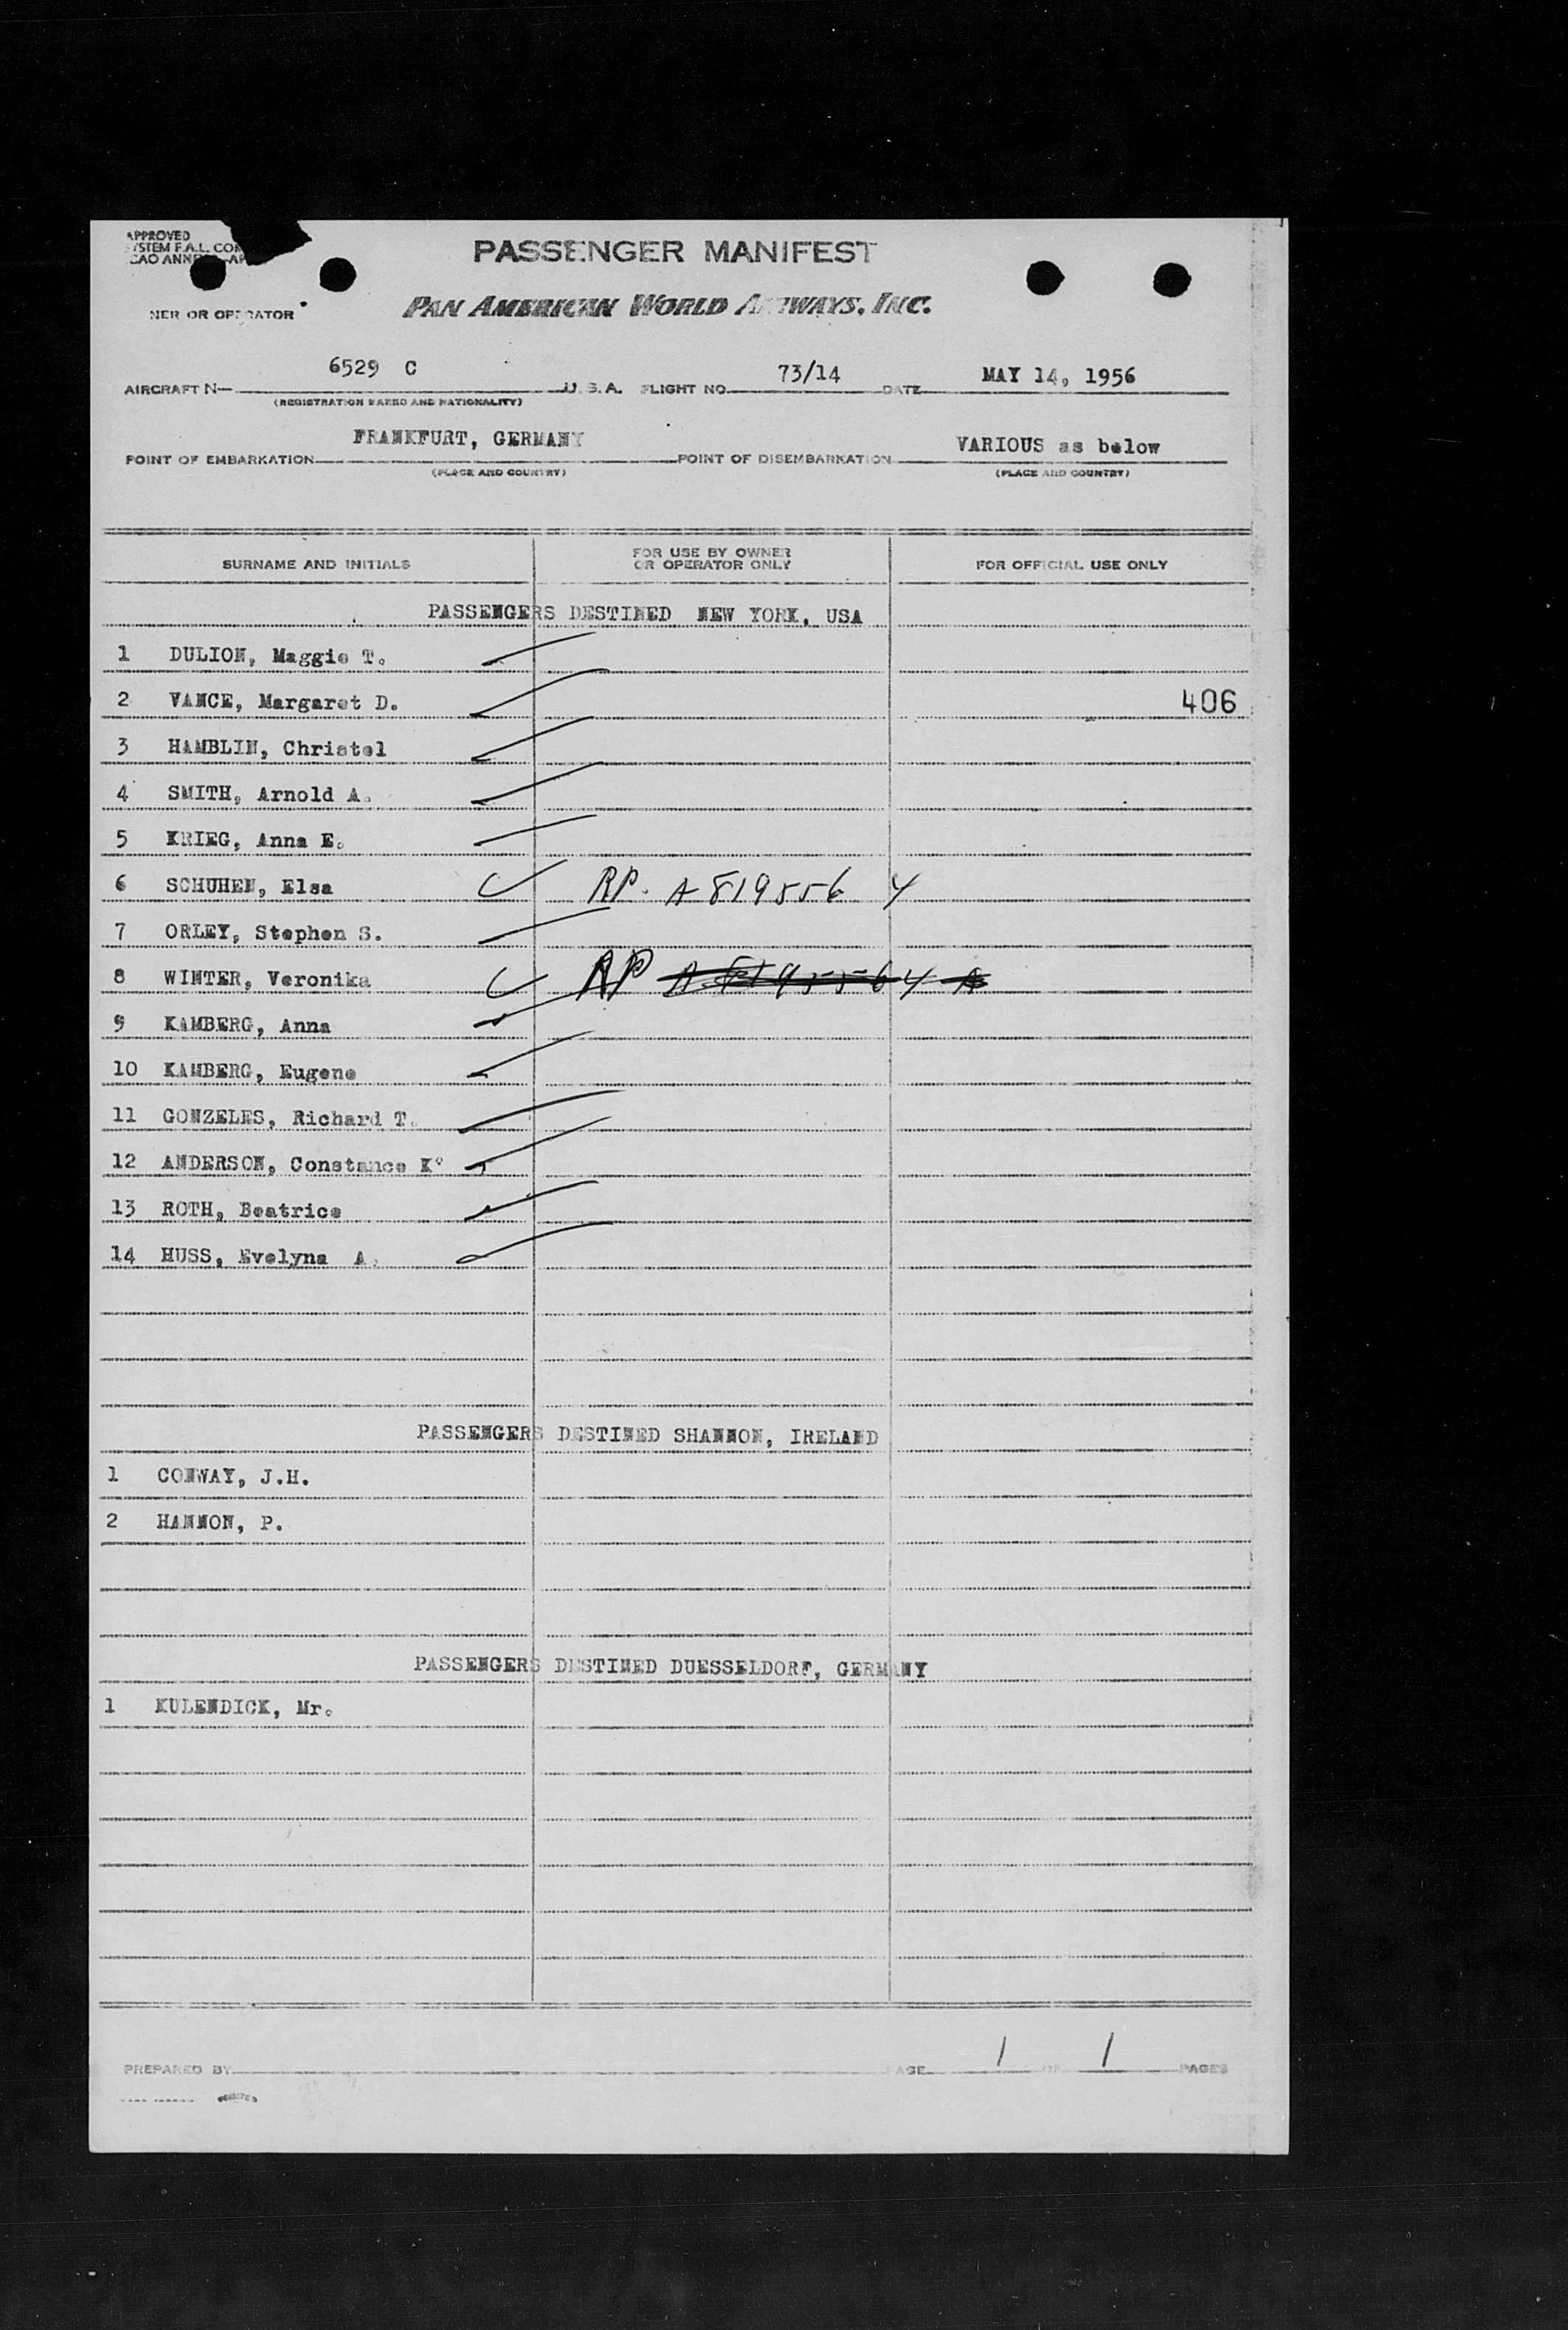 APPROVED
PASSENGER MANIFEST
PAN AMERICAN WORLD AIRWAYS, INC.
OR OPERATOR
6529 C
73/14
MAY 14, 1956
AIRCRAFT N— U.S.A. FLIGHT NO. DATE
(REGISTRATION MARKS AND NATIONALITY)
FRANKFURT, GERMANY
VARIOUS as below
POINT OF EMBARKATION POINT OF DISEMBARKATION
(PLACE AND COUNTRY) (PLACE AND COUNTRY)
SURNAME AND INITIALS FOR USE BY OWNER OR OPERATOR ONLY FOR OFFICIAL USE ONLY
PASSENGERS DESTINED NEW YORK, USA
1 DULION, Maggie T.
2 VANCE, Margaret D. 406
3 HAMBLIN, Christel
4 SMITH, Arnold A.
5 KRIEG, Anna E.
6 SCHUHEN, Elsa RP. A 819556 4
7 ORLEY, Stephen S.
8 WINTER, Veronika RP A 819556 4
9 KAMBERG, Anna
10 KAMBERG, Eugene
11 GONZELES, Richard T.
12 ANDERSON, Constance K.
13 ROTH, Beatrice
14 HUSS, Evelyna A.
PASSENGERS DESTINED SHANNON, IRELAND
1 CONWAY, J.H.
2 HANNON, P.
PASSENGERS DESTINED DUESSELDORF, GERMANY
1 KULENDICK, Mr.
PREPARED BY PAGE 1 OF 1 PAGES